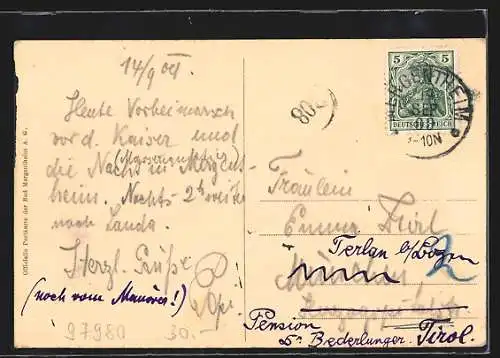 14/9 09.
Heute Vorbeimarsch
vor d. Kaiser und
die Nacht in Mergent-
heim. Nachts 2h weiter
nach Lauda.
Herzl. Grüße
(noch vom Manöver!)
97980 30.-
Offizielle Postkarte der Bad Mergentheim A. G.
80
5 5
DEUTSCHES REICH
MERGENTHEIM
SEP
-10N
Fräulein
Emma
Terlan b/Bozen
München,
2
Pension
Dr. Bederlunger. Tirol.